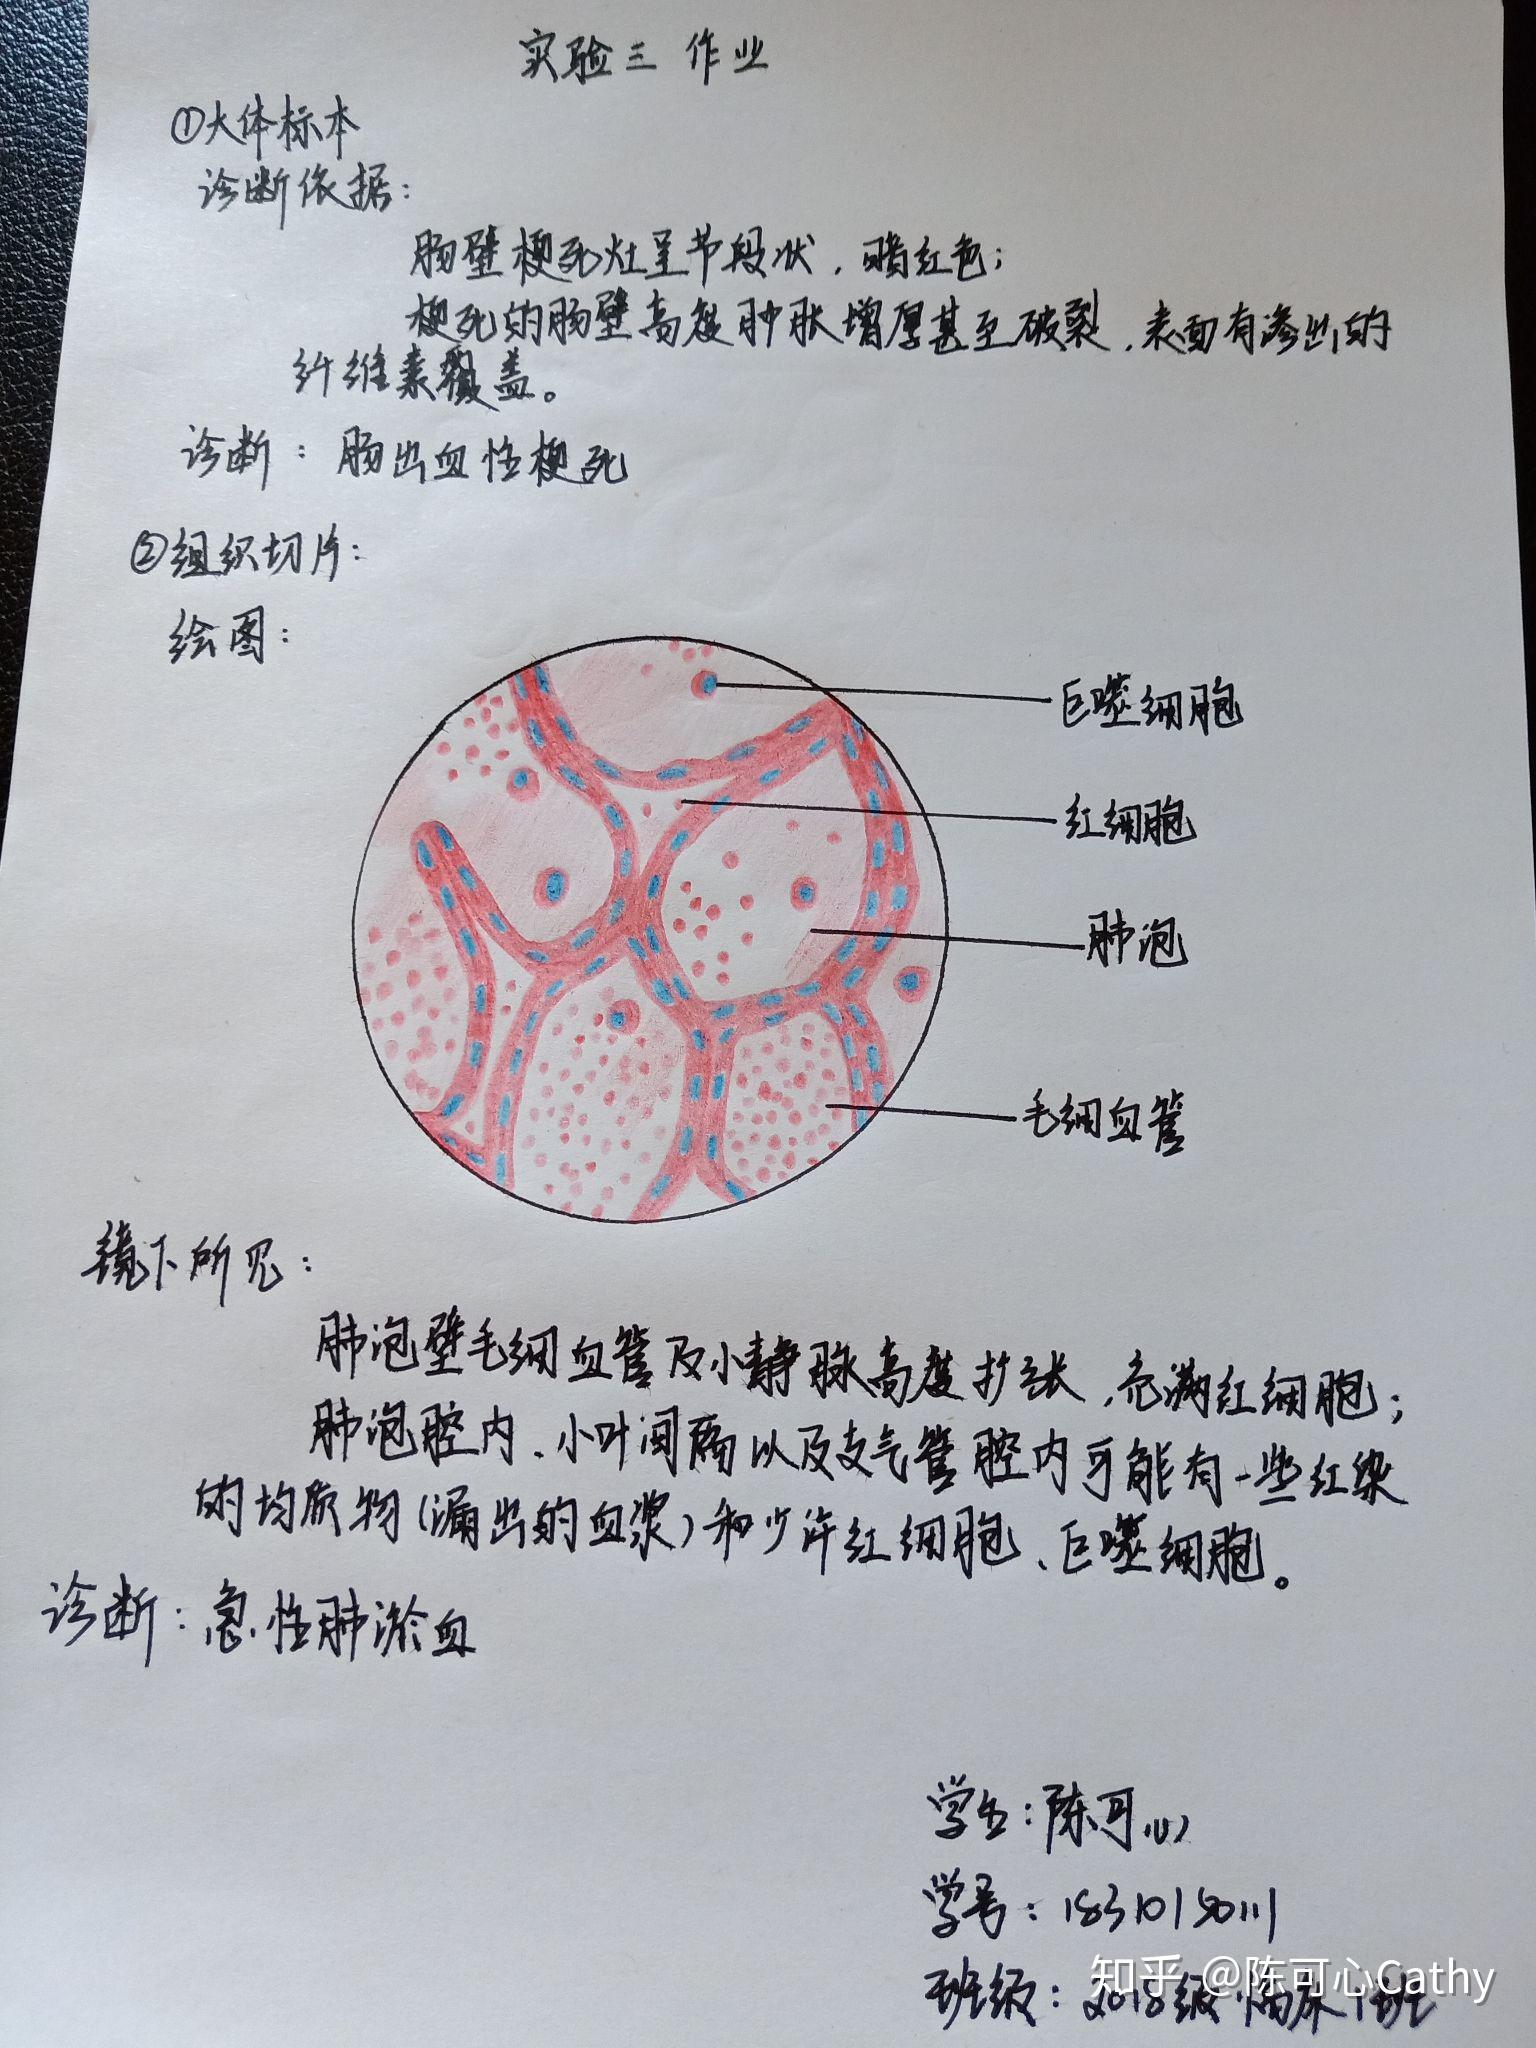 实验三 作业
①大体标本
诊断依据：
肠壁梗死灶呈节段状，暗红色；
梗死的肠壁高度肿胀增厚甚至破裂，表面有渗出的
纤维素覆盖。
诊断：肠出血性梗死
②组织切片：
绘图：
巨噬细胞
红细胞
肺泡
毛细血管
镜下所见：
肺泡壁毛细血管及小静脉高度扩张，充满红细胞；
肺泡腔内、小叶间隔以及支气管腔内可能有一些红染
的均质物（漏出的血浆）和少许红细胞、巨噬细胞。
诊断：急性肺淤血
学生：陈可心
学号：18310150111
班级：2018级临床1班
知乎 @陈可心Cathy